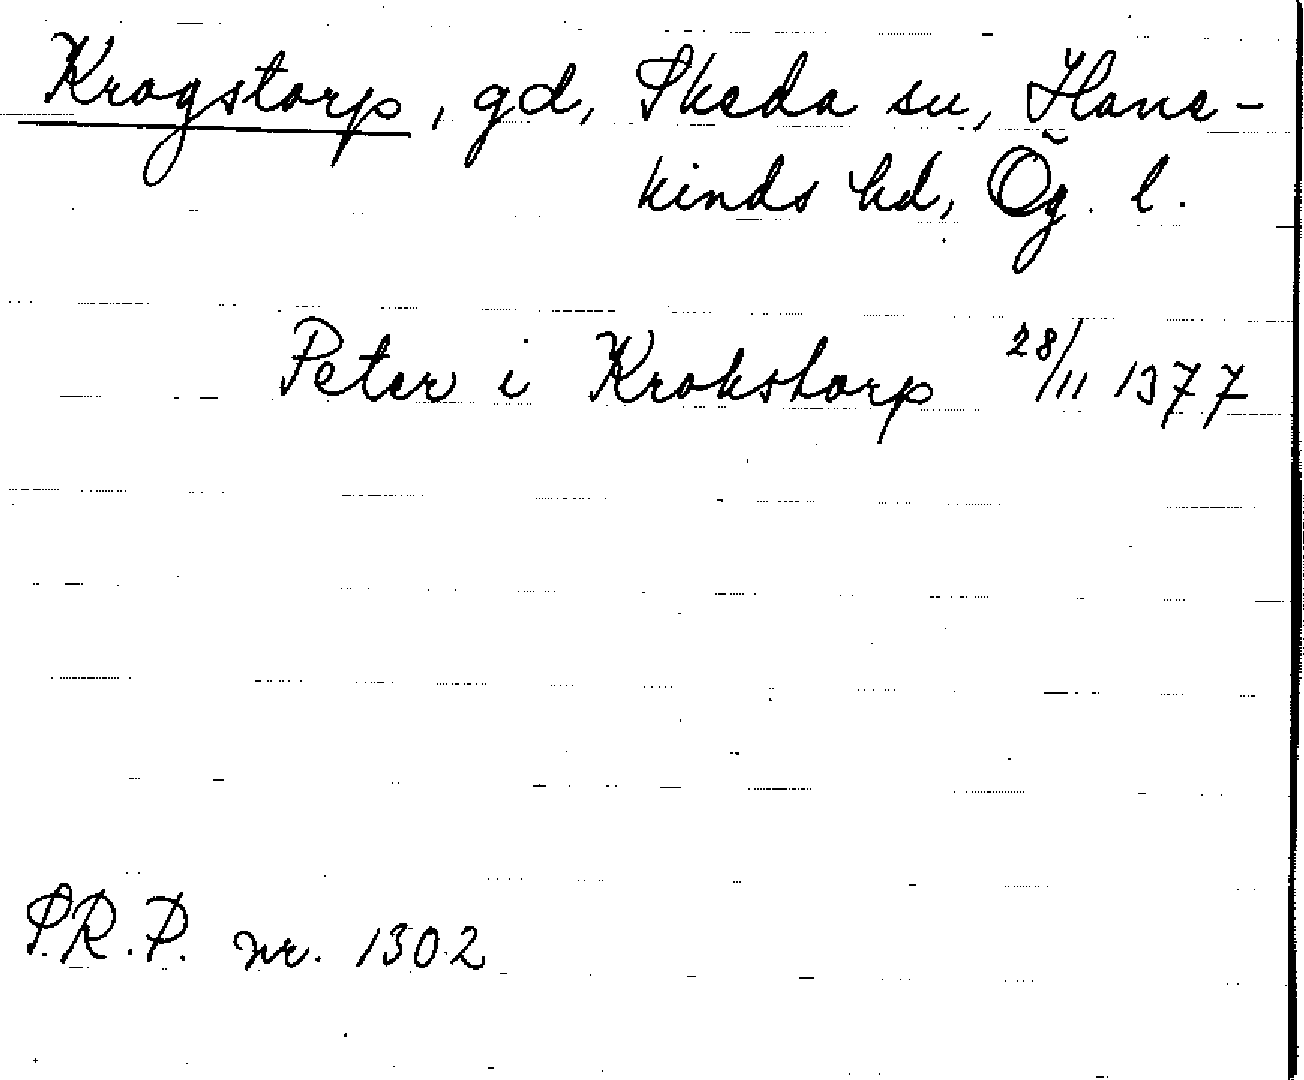 Krogstorp, gd, Skeda sn, Hane-
kinds hd, Ög. l.
Peter i Krokstorp 28/11 1377
S.R.P. nr. 1302